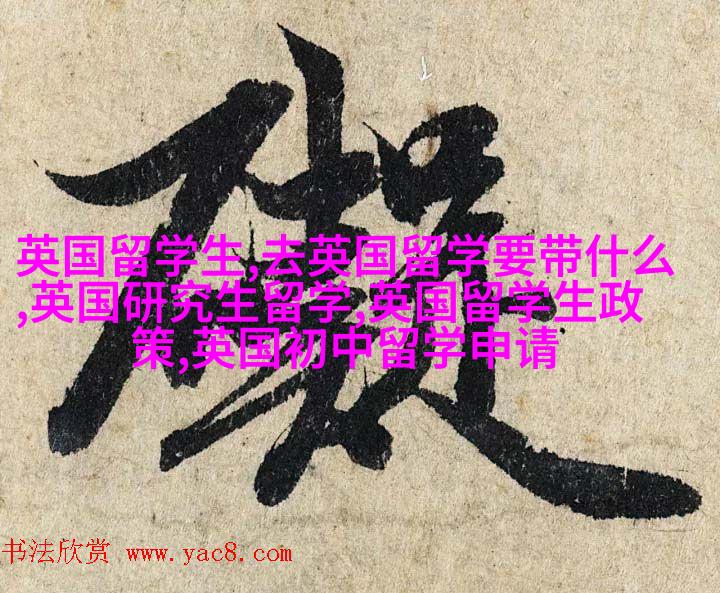 礙
英国留学生,去英国留学要带什么
,英国研究生留学,英国留学生政
策,英国初中留学申请
书法欣赏 www.yac8.com